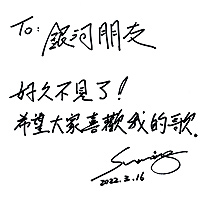 To: 銀河朋友
好久不見了!
希望大家喜歡我的歌.
2022.3.16